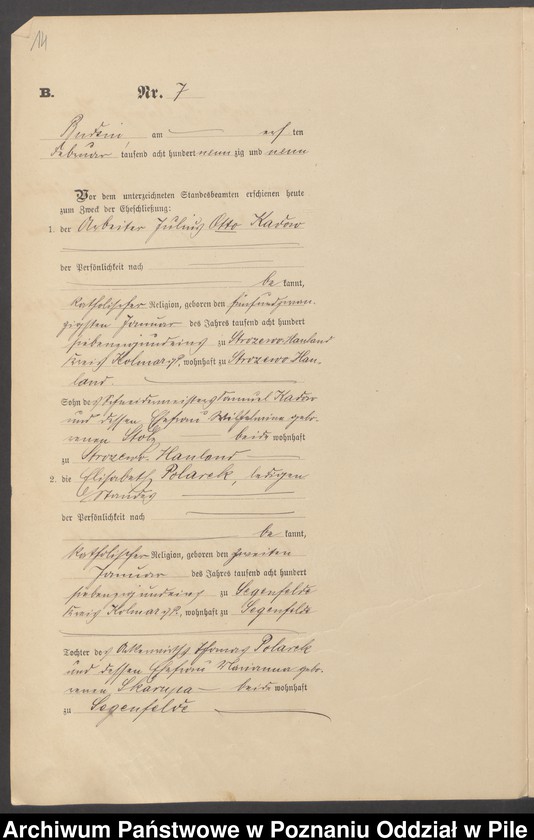 14
B. Nr. 7
Budsin am ersten
Februar tausend acht hundert neunzig und neun
Vor dem unterzeichneten Standesbeamten erschienen heute
zum Zweck der Eheschließung:
1. der Arbeiter Julius Otto Kadow
der Persönlichkeit nach
bekannt,
katholischer Religion, geboren den fünfundzwan-
zigsten Januar des Jahres tausend acht hundert
siebenzig und eins zu Strozewo Hauland
Kreis Kolmar i/P., wohnhaft zu Strozewo Hau-
land.
Sohn des Schneidermeisters Samuel Kadow
und dessen Ehefrau Wilhelmine gebo-
renen Stolz beide wohnhaft
zu Strozewo Hauland
2. die Elisabeth Polarek, ledigen
Standes
der Persönlichkeit nach
bekannt,
katholischer Religion, geboren den zweiten
Januar des Jahres tausend acht hundert
siebenzig und eins zu Segenfelde
Kreis Kolmar i/P., wohnhaft zu Segenfelde
Tochter des Ackerwirths Thomas Polarek
und dessen Ehefrau Marianna gebo-
renen Skarupa beide wohnhaft
zu Segenfelde
Archiwum Państwowe w Poznaniu Oddział w Pile